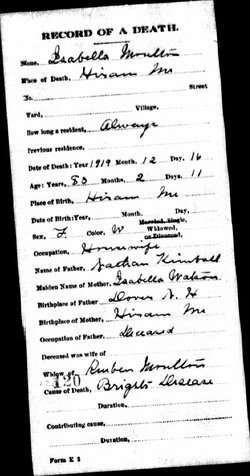 RECORD OF A DEATH.
Name, Isabella Moulton
Place of Death, Hiram Me
No. Street
Ward, Village,
How long a resident, Always
Previous residence,
Date of Death: Year, 1919 Month, 12 Day, 16
Age: Years, 83 Months, 2 Days, 11
Place of Birth, Hiram Me
Date of Birth: Year, Month, Day,
Married, Single,
Sex, F Color, W Widowed,
or Divorced,
Occupation, Housewife
Name of Father, Nathan Kimball
Maiden Name of Mother, Isabella Watson
Birthplace of Father Dover N. H
Birthplace of Mother, Hiram Me
Occupation of Father, Deceased
Deceased was wife of
Widow of Reuben Moulton
120
Cause of Death, Brights Disease
Duration,
Contributing cause,
Duration,
Form E 3